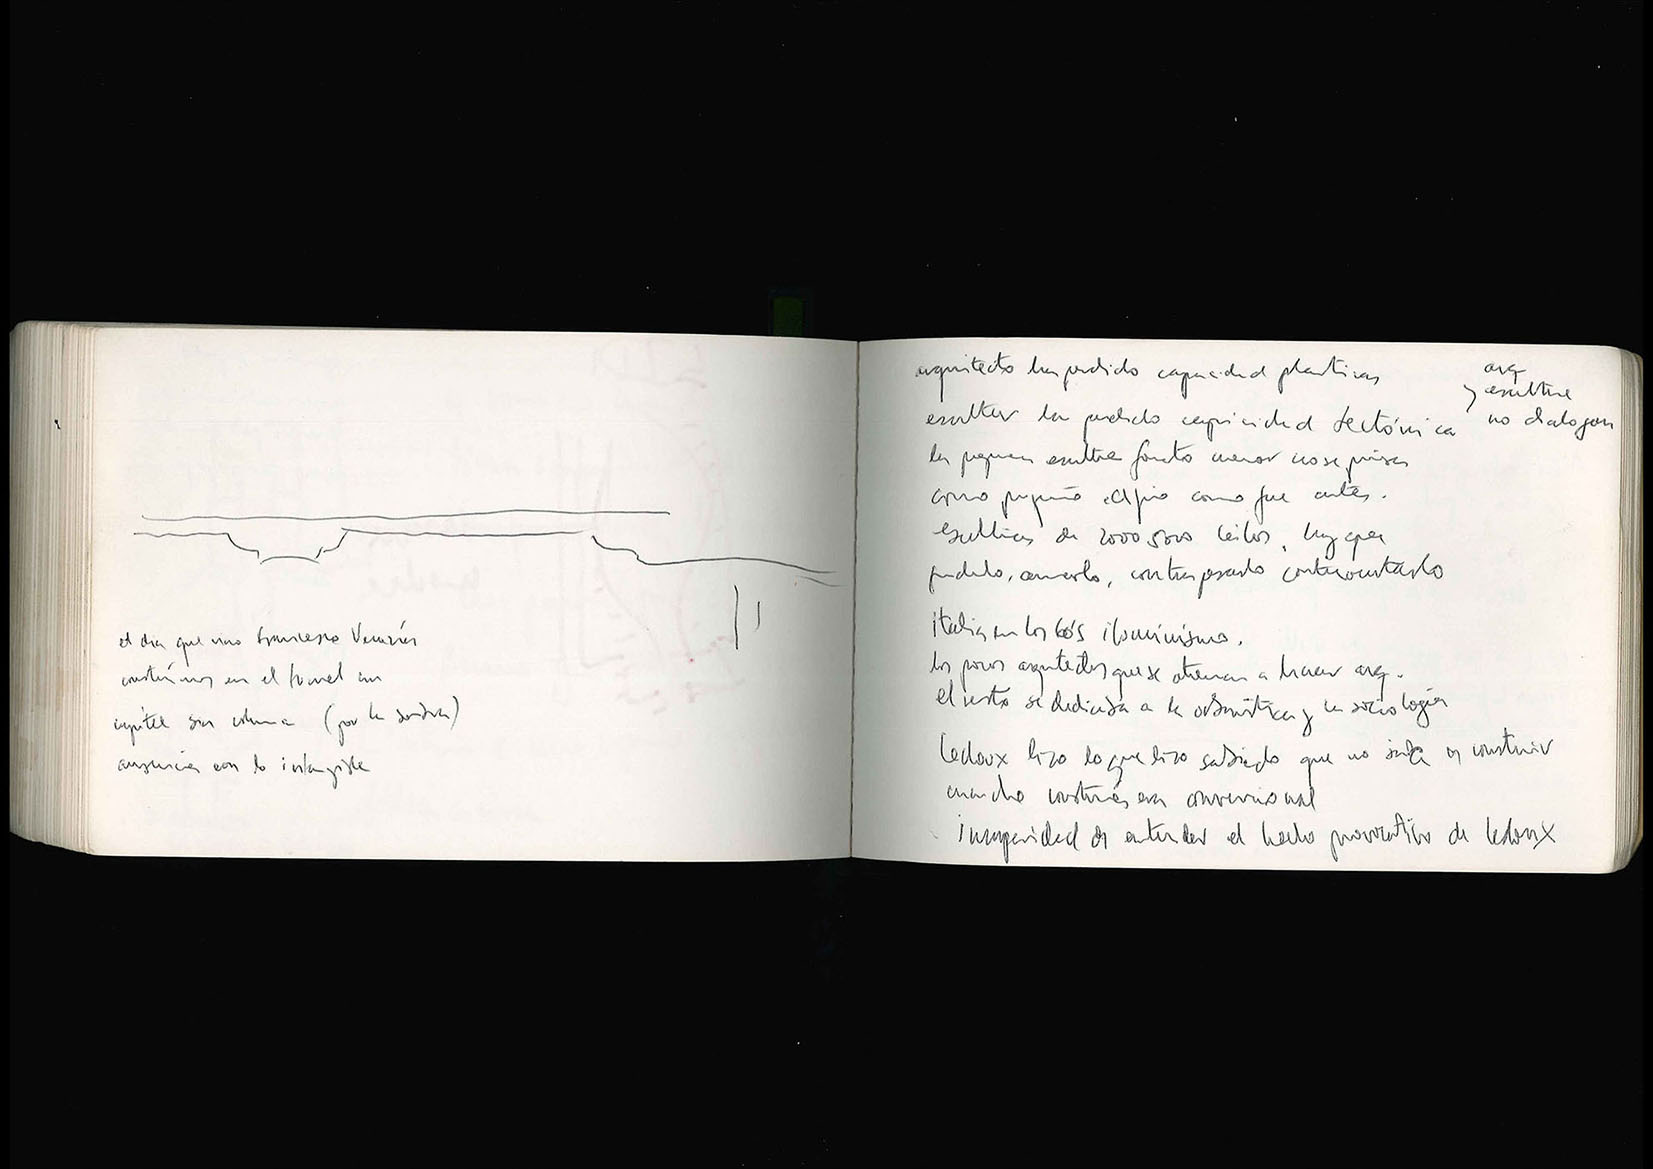 el dia que vino Francesco Venezia
construimos en el tunel un
capitel sin columna (por la sombra)
ausencia con lo intangible
arquitecto ha perdido capacidad plastica
escultor ha perdido capacidad tectónica
} arq
escultura
no dialogan
la pequeña escultura formato menor no se piensa
como pequeño como fue antes.
esculturas de 2000 5000 kilos, hay que
contrapesarlo contrarrestarlo
italia en los 60's iluminismo.
los pocos arquitectos que se atrevan a hacer arq.
el resto se dedicaba a la urbanistica y la sociologia
Ledoux hizo lo que hizo sabiendo que no iba a construir
cuando construia era convencional
incapacidad de entender el hecho provocativo de Ledoux